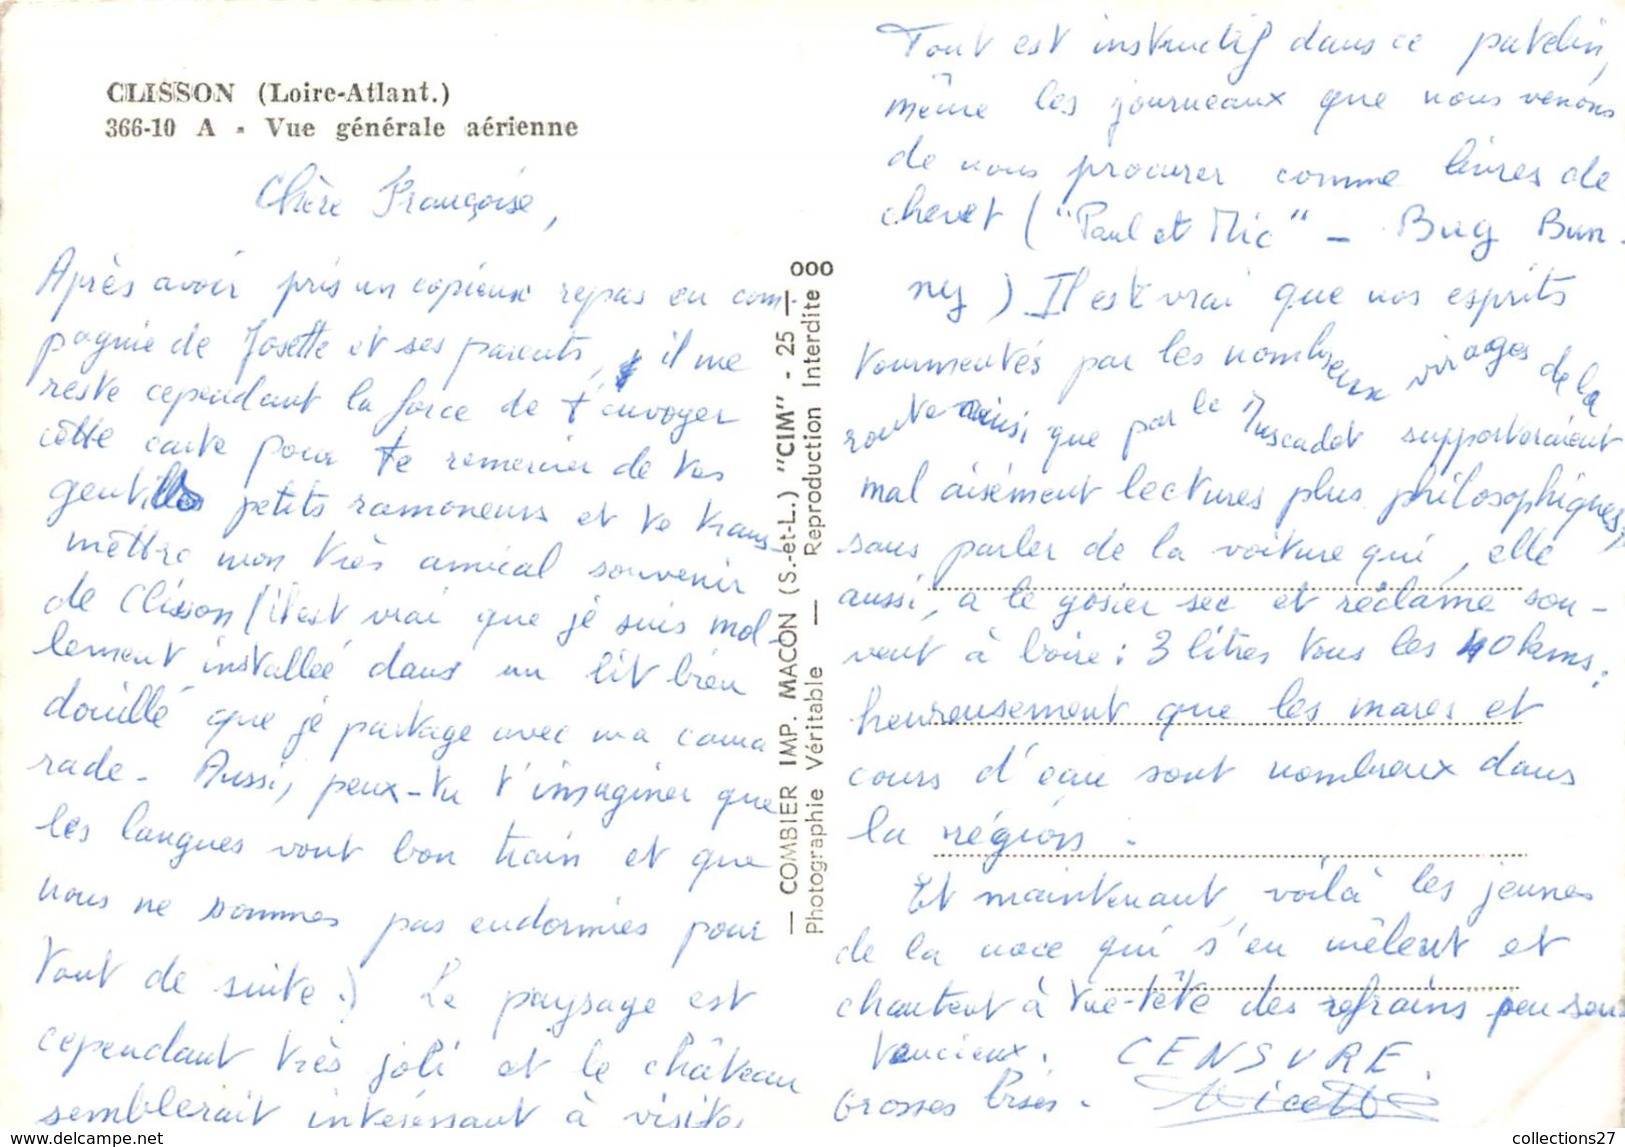 CLISSON (Loire-Atlant.)
366-10 A - Vue générale aérienne
Chère Françoise,
Après avoir pris un copieux repas en com-
pagnie de Josette et ses parents, il me
reste cependant la force de t'envoyer
cette carte pour te remercier de tes
gentils petits ramoneurs et te trans-
mettre mon très amical souvenir
de Clisson (il est vrai que je suis mol-
lement installée dans un lit bien
douillé que je partage avec ma cama
rade - Aussi, peux-tu t'imaginer que
les langues vont bon train et que
nous ne sommes pas endormies pour
tout de suite.) Le paysage est
cependant très joli et le château
semblerait intéressant à visiter
— COMBIER IMP. MACON (S.-et-L.) "CIM" - 25 — 000
Photographie Véritable — Reproduction Interdite
Tout est instructif dans ce patelin,
même les journeaux que nous venons
de nous procurer comme livres de
chevet ("Paul et Mic" - Bug Bun-
ny) Il est vrai que nos esprits
tourmentés par les nombreux virages de la
route ainsi que par le Muscadet supporteraient
mal aisément lectures plus philosophiques,
sans parler de la voiture qui, elle
aussi, a le gosier sec et réclame sou-
vent à boire : 3 litres tous les 40 kms;
heureusement que les mares et
cours d'eau sont nombreux dans
la région.
Et maintenant, voilà les jeunes
de la noce qui s'en mêlent et
chantent à tue-tête des refrains peu sen
tencieux. CENSURE.
Grosses bises. Nicette
collections27